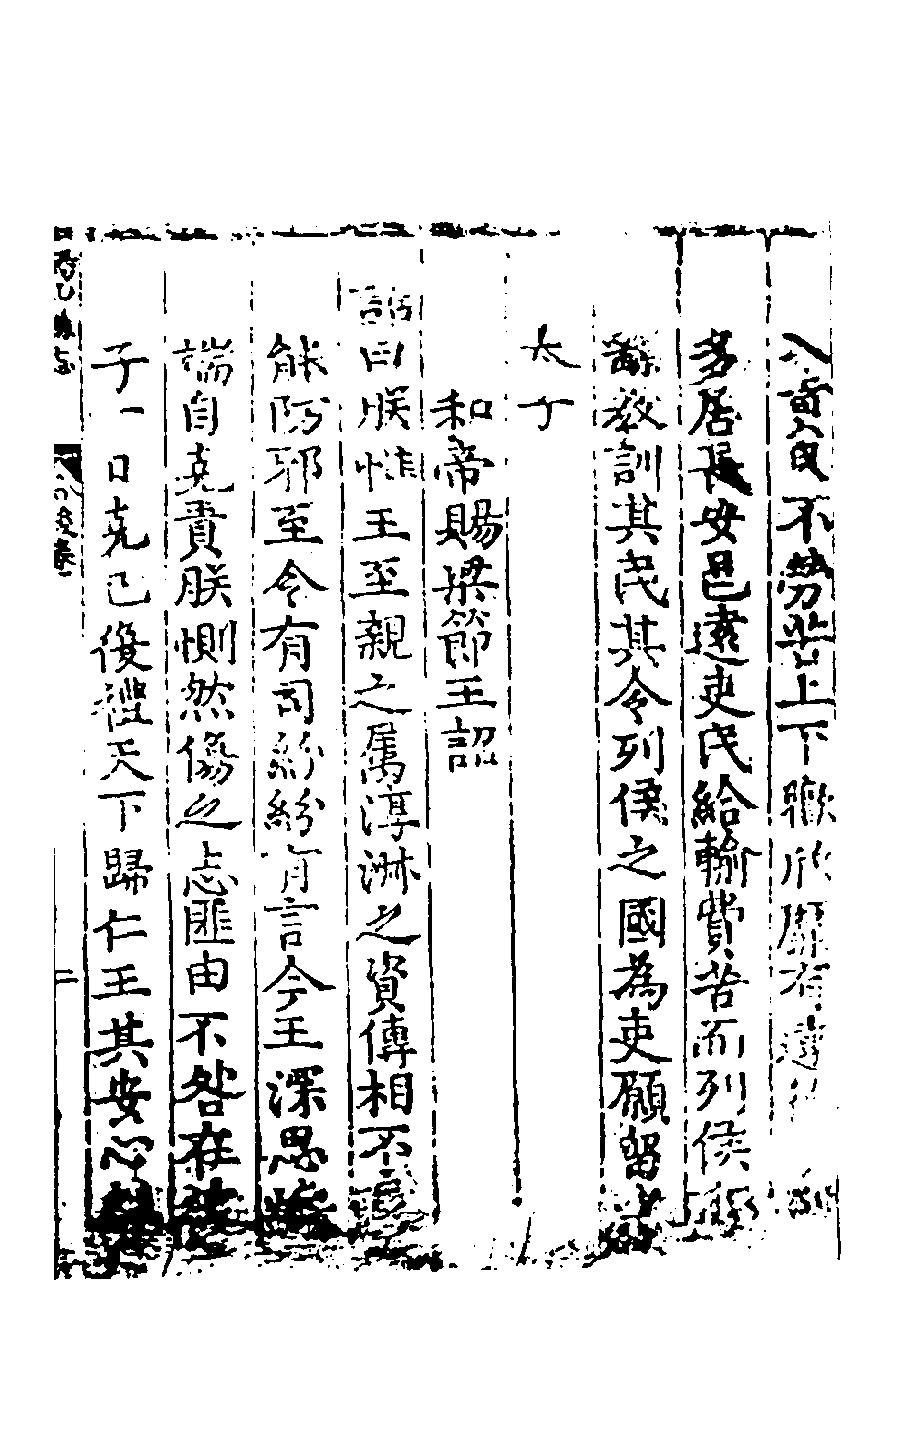 入畜食不勞苦上下驩欣靡有遺
多居長安邑遠吏民給輸費苦而列侯
繇敎訓其民其令列侯之國為吏願留
太子
和帝賜梁節王詔
詔曰朕惟王至親之属淳淋之資傳相不
能防邪至令有司紛紛有言今王深思
端自克責朕惻然傷之志匪由不咎在
子一日克己復禮天下歸仁王其安心
二